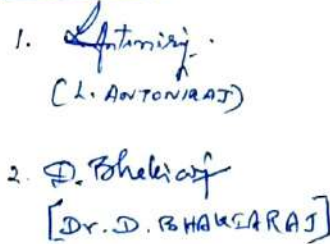 1. L. Antoniraj.
(L. ANTONIRAJ)
2. D. Bhakiaraj
[Dr. D. BHAKIARAJ]